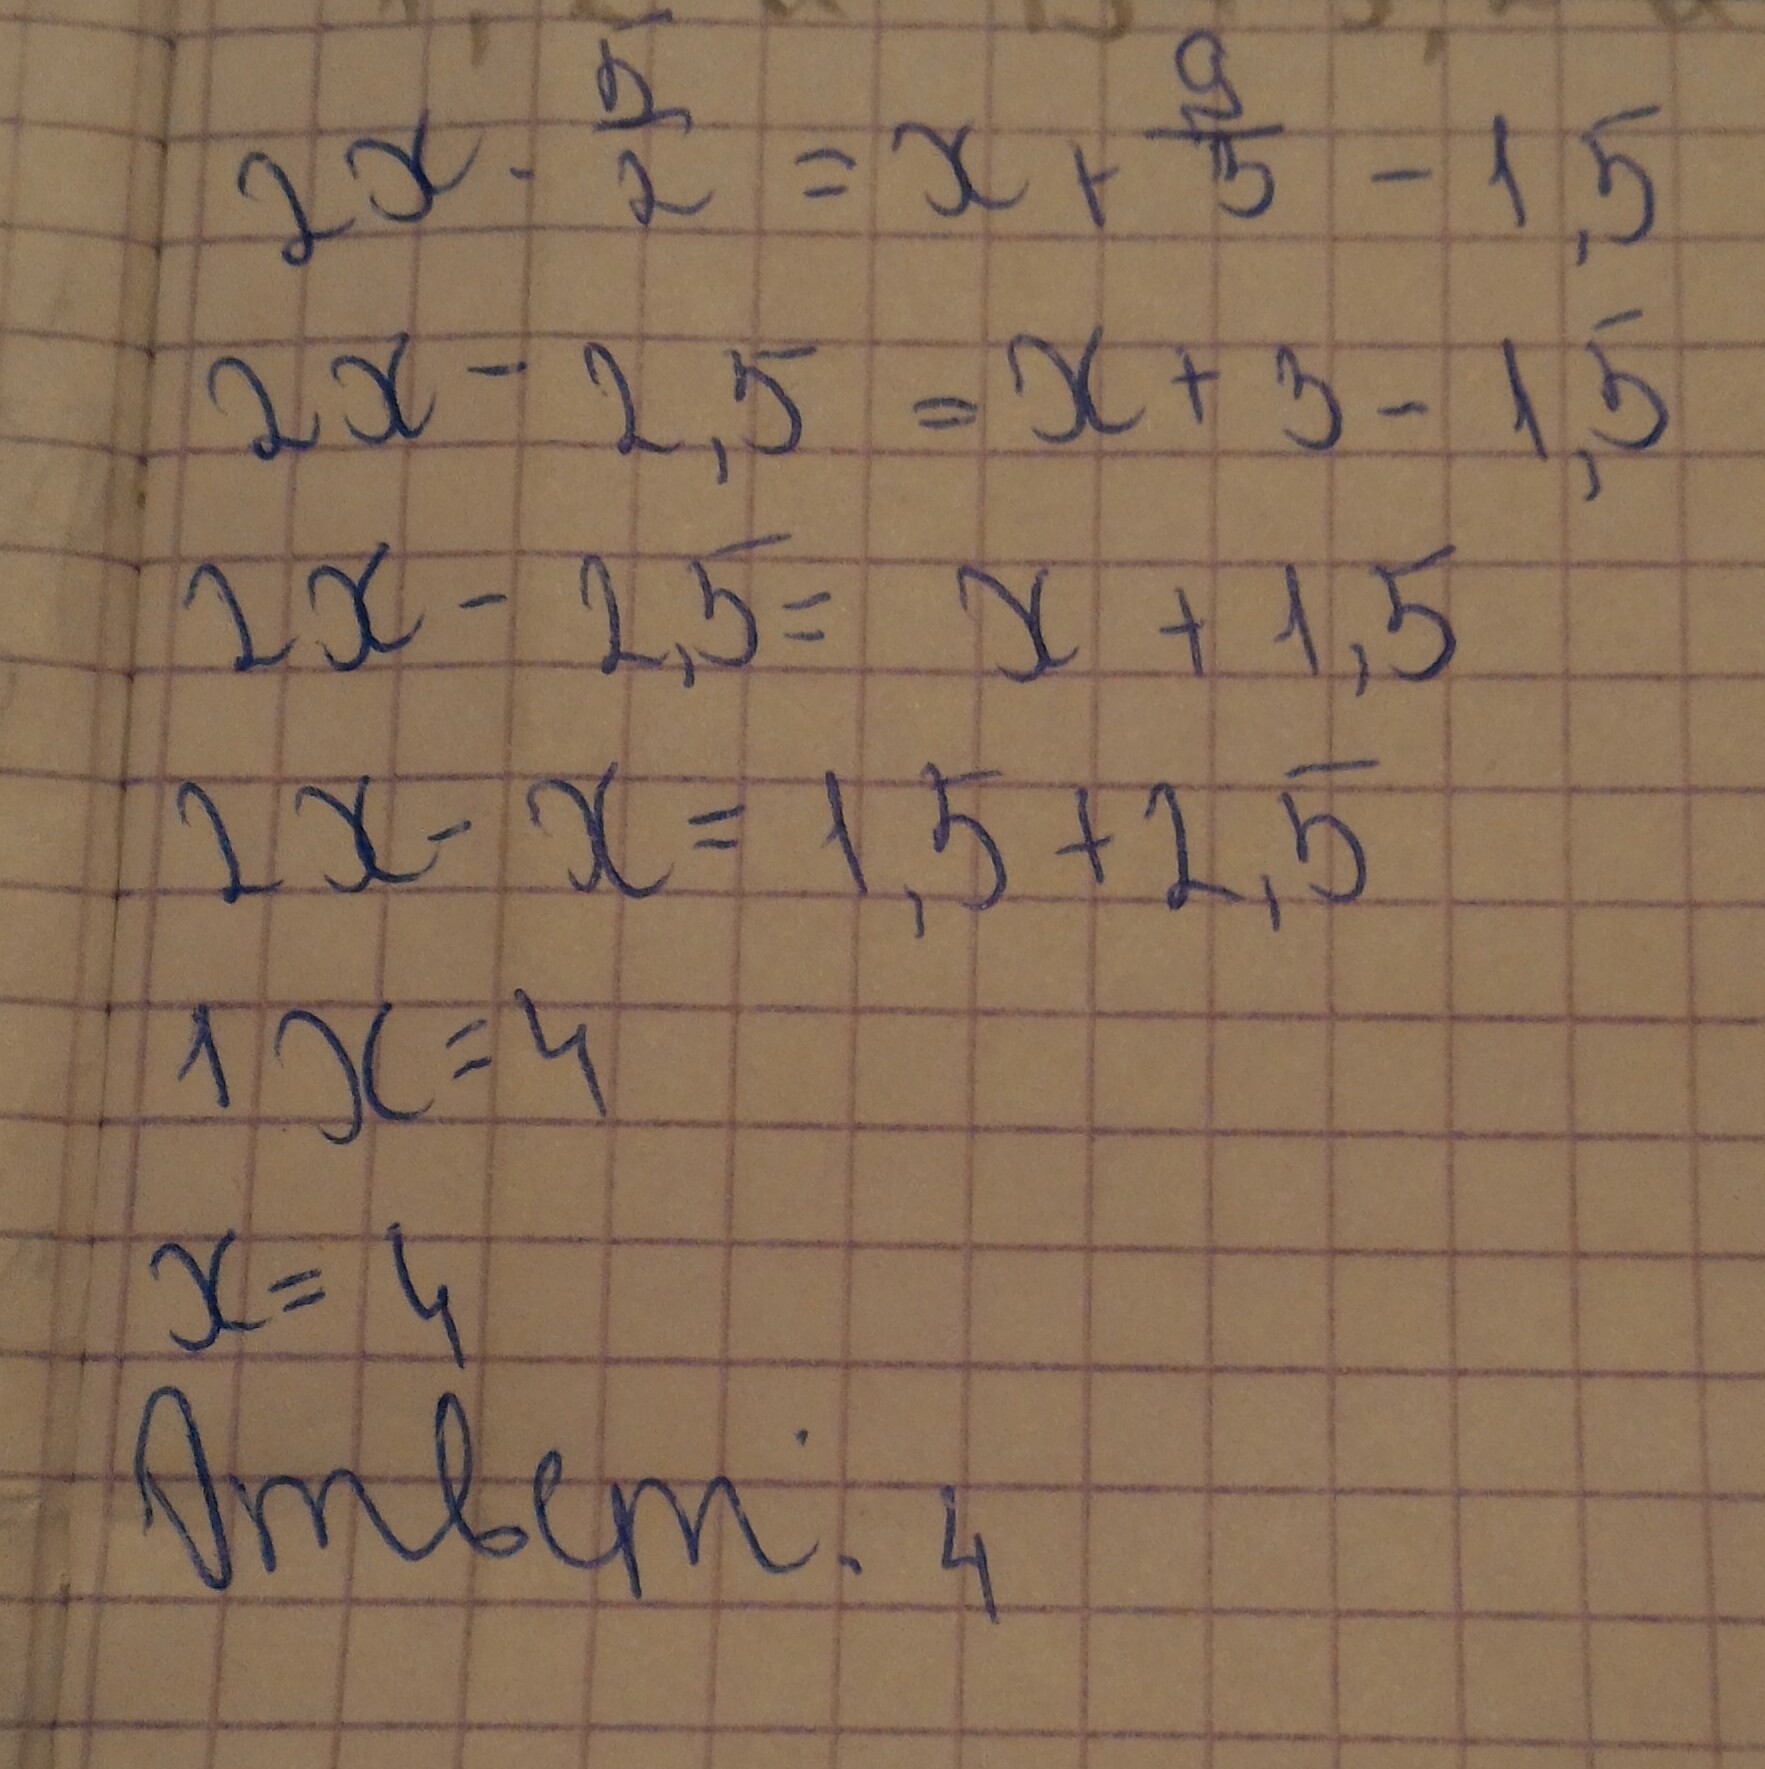 2x - 5/2 = x + 9/3 - 1,5
2x - 2,5 = x + 3 - 1,5
2x - 2,5 = x + 1,5
2x - x = 1,5 + 2,5
1x = 4
x = 4
Ответ: 4